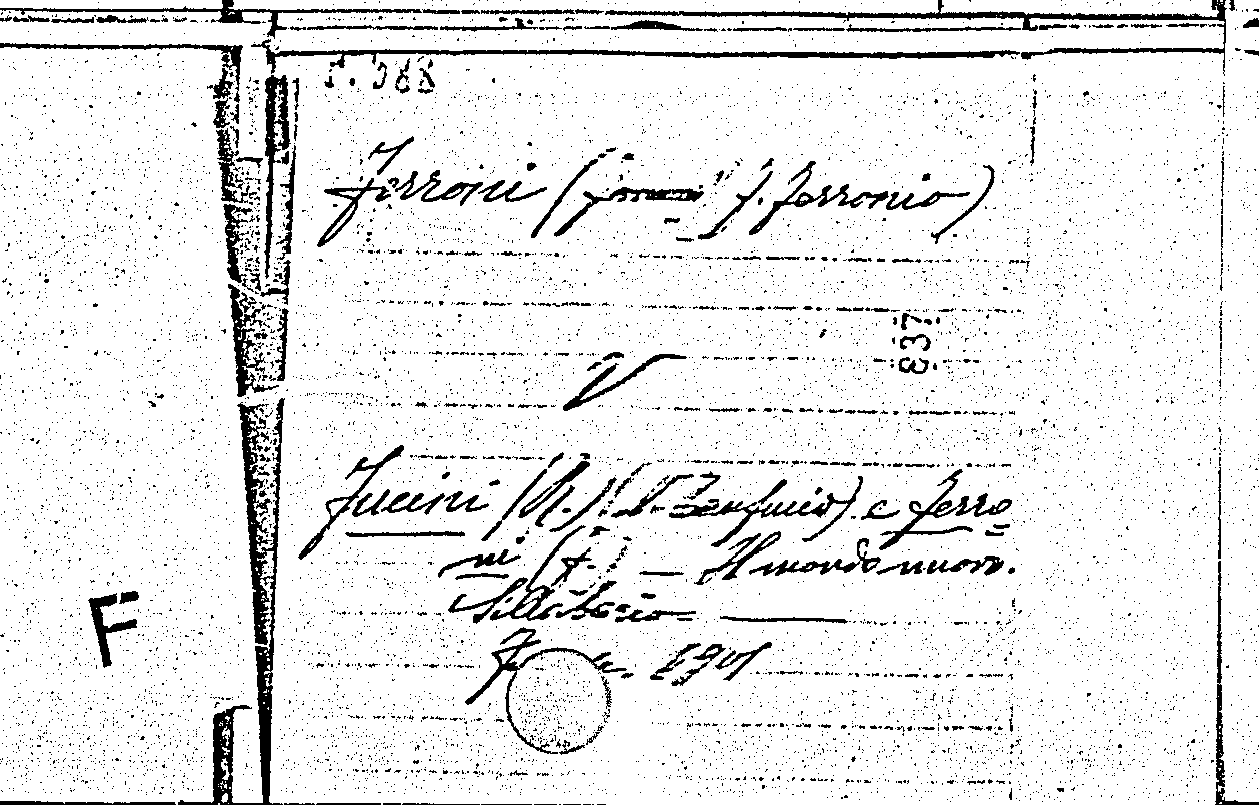 F. 588
Ferroni ( f. Ferronio)
837
V
Fucini (R.) (T. Tanfucio) e Ferro
ni (F.) — Il mondo nuovo.
Sillabario —
F
1901